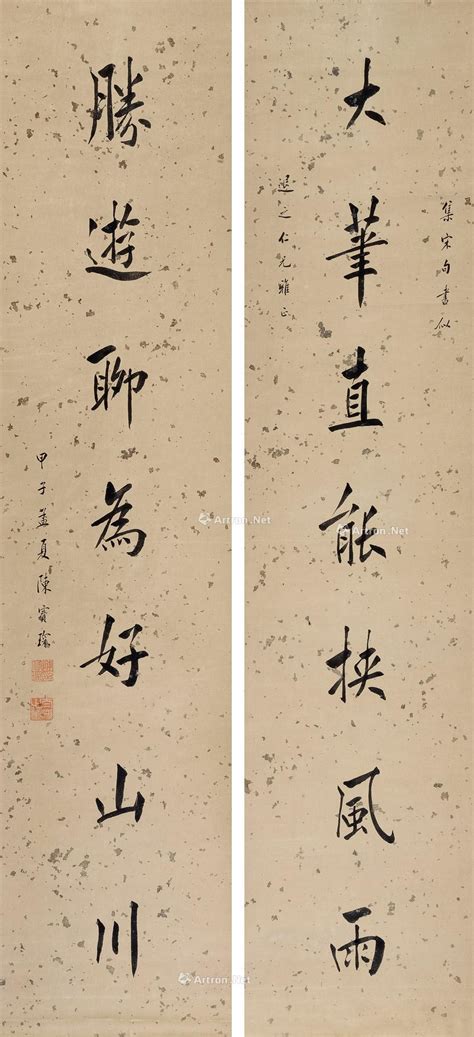 集宋句書似
大筆直能挾風雨
退之仁兄雅正
勝遊聊為好山川
甲子孟夏陳寶琛
Artron.Net
Artron.Net
Artron.Net
Artron.Net